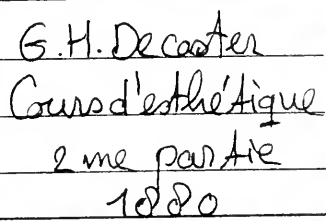 G.H. Decaster
Cours d'esthétique
2me partie
1880